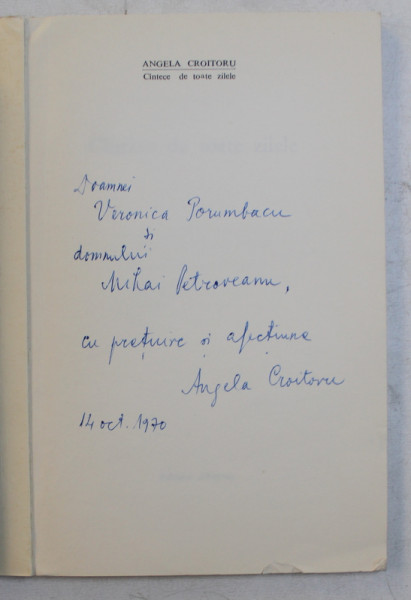 ANGELA CROITORU
Cîntece de toate zilele
Doamnei
Veronica Porumbacu
și
domnului
Mihai Petroveanu,
cu prețuire și afecțiune
Angela Croitoru
14 oct. 1970